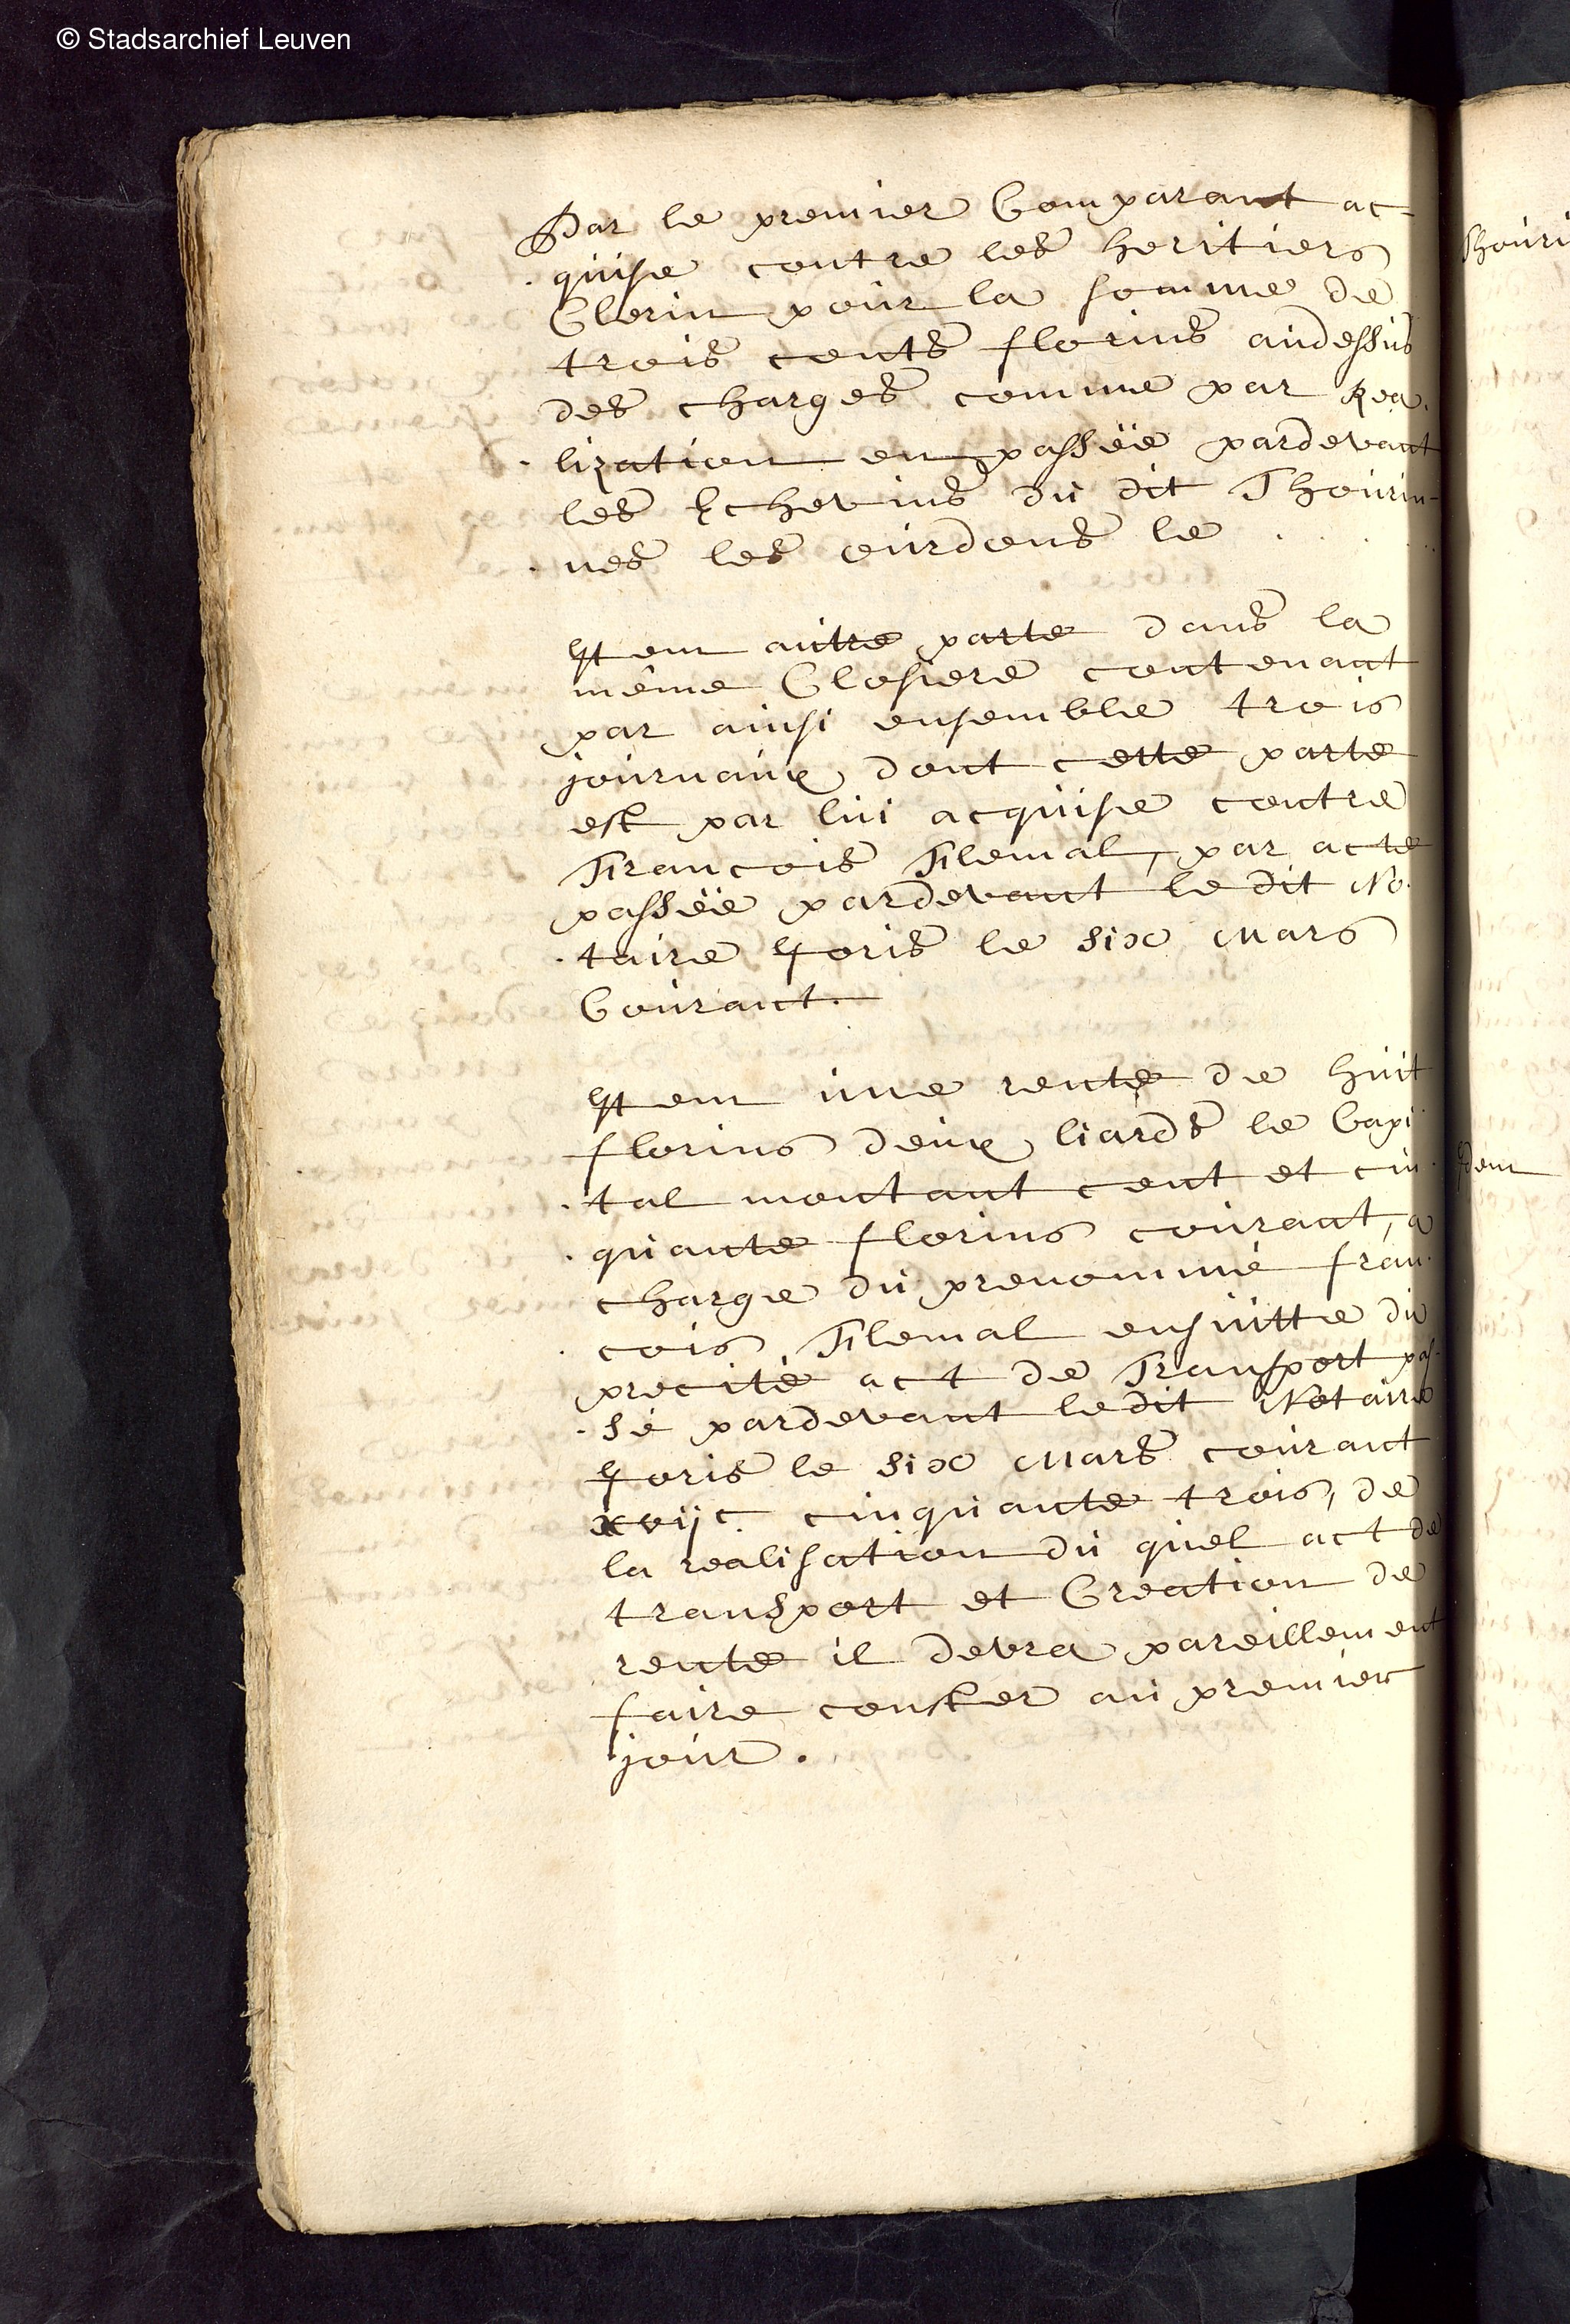 © Stadsarchief Leuven
Par le premier Comparant ac-
quise contre les heritiers
Glorin pour la somme de
trois cents florins audessus
des charges comme par Rea
lization en passëe pardevant
les Echevins du dit Thourin-
nes les ourdons le . . . .
Item autre parte dans la
même Closiere contenant
par ainsi ensemble trois
journaux dont cette parte
est par lui acquise contre
Francois Filemal, par acte
passëe pardevant le dit No
taire Goris le six Mars
Courant.
Item une rente de huit
florins deux liards le Capi
tal montant cent et cin
quante florins courant, a
charge du prenommé fran
cois Filemal ensuitte du
precité act de Transport pas
sé pardevant ledit Notaire
Goris le six Mars courant
xvijc cinquante trois, de
la realisation du quel act de
transport et Creation de
rente il devra pareillement
faire conster au premier
jour.
Thouri